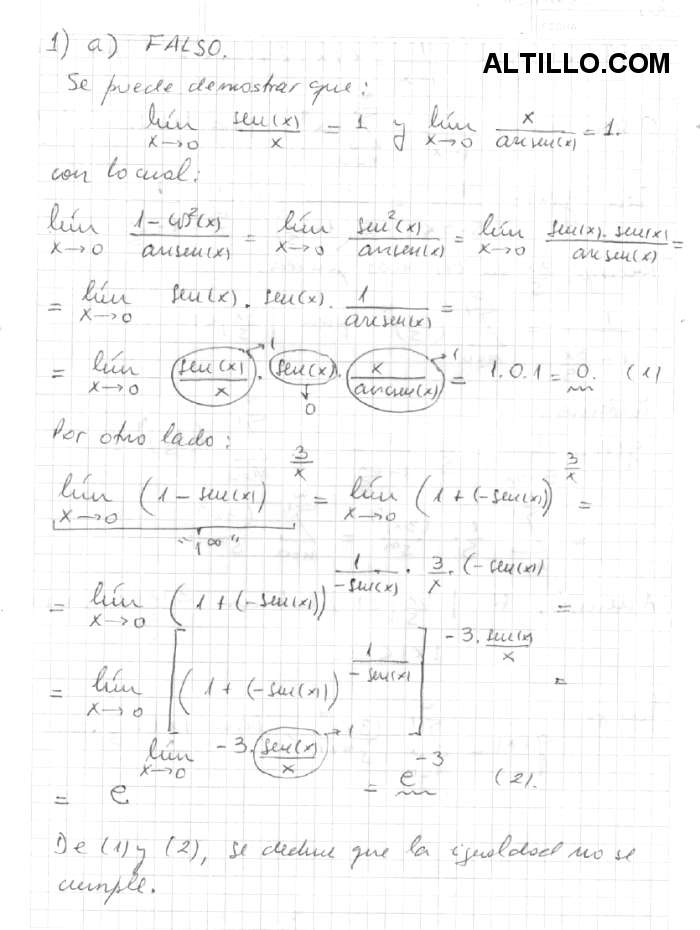 1) a) FALSO.
ALTILLO.COM
Se puede demostrar que:
lím x→0 sen(x)/x = 1 y lím x→0 x/arcsen(x) = 1.
con lo cual:
lím x→0 1-cos²(x)/arcsen(x) = lím x→0 sen²(x)/arcsen(x) = lím x→0 sen(x).sen(x)/arcsen(x) =
= lím x→0 sen(x). sen(x). 1/arcsen(x) =
= lím x→0 sen(x)/x →1 . sen(x) ↓0 . x/arcsen(x) →1 = 1.0.1 = 0. (1)
Por otro lado:
lím x→0 (1-sen(x))^(3/x) = lím x→0 (1+(-sen(x)))^(3/x) =
"1^∞"
= lím x→0 (1+(-sen(x)))^(1/-sen(x) . 3/x . (-sen(x))) =
= lím x→0 [(1+(-sen(x)))^(1/-sen(x))]^(-3. sen(x)/x) =
= e^(lím x→0 -3. sen(x)/x →1) = e^-3 (2).
De (1) y (2), se deduce que la igualdad no se
cumple.